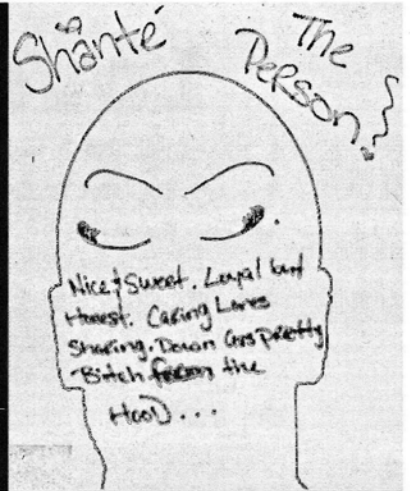 Shanté
The
Person!
Nice & Sweet. Loyal but
Honest. Caring Loves
Sharing. Down ass pretty
Bitch from the
Hood...